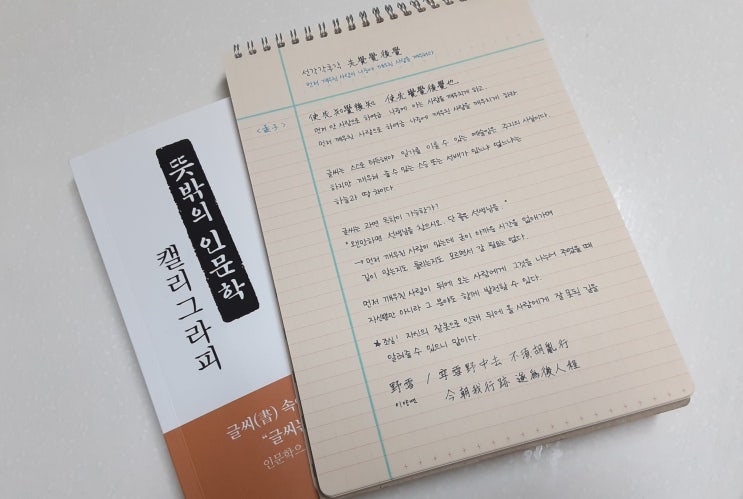 뜻밖의 인문학
캘리그라피
글씨(書) 속
"글씨는
인문학으
선각각후각 先覺覺後覺
먼저 깨우친 사람이 나중에 깨우칠 사람을 깨우쳐라
<맹자>
使先知覺後知 使先覺覺後覺也
먼저 안 사람으로 하여금 나중에 아는 사람을 깨우치게 하고
먼저 깨우친 사람으로 하여금 나중에 깨우친 사람을 깨우치게 하라
글씨는 스스로 터득해야 일가를 이룰 수 있는 예술임은 주지의 사실이다.
하지만 깨우쳐 줄 수 있는 스승 또는 선배가 있느냐 없느냐는
하늘과 땅 차이다.
글씨는 과연 독학이 가능할까?
"웬만하면 선생님을 찾으시오. 단 좋은 선생님을."
→ 먼저 깨우친 사람이 있는데 굳이 아까운 시간을 없애가며
길이 있는지도 틀리는지도 모르면서 갈 필요는 없다.
먼저 깨우친 사람이 뒤에 오는 사람에게 그것을 나누어 주었을 때
자신뿐만 아니라 그 분야도 함께 발전될 수 있다.
★ 조심! 자신의 잘못으로 인해 뒤에 올 사람에게 잘못된 길을
알려줄 수 있으니 말이다.
野雪 / 穿雪野中去 不須胡亂行
이양연 今朝我行跡 遂爲後人程